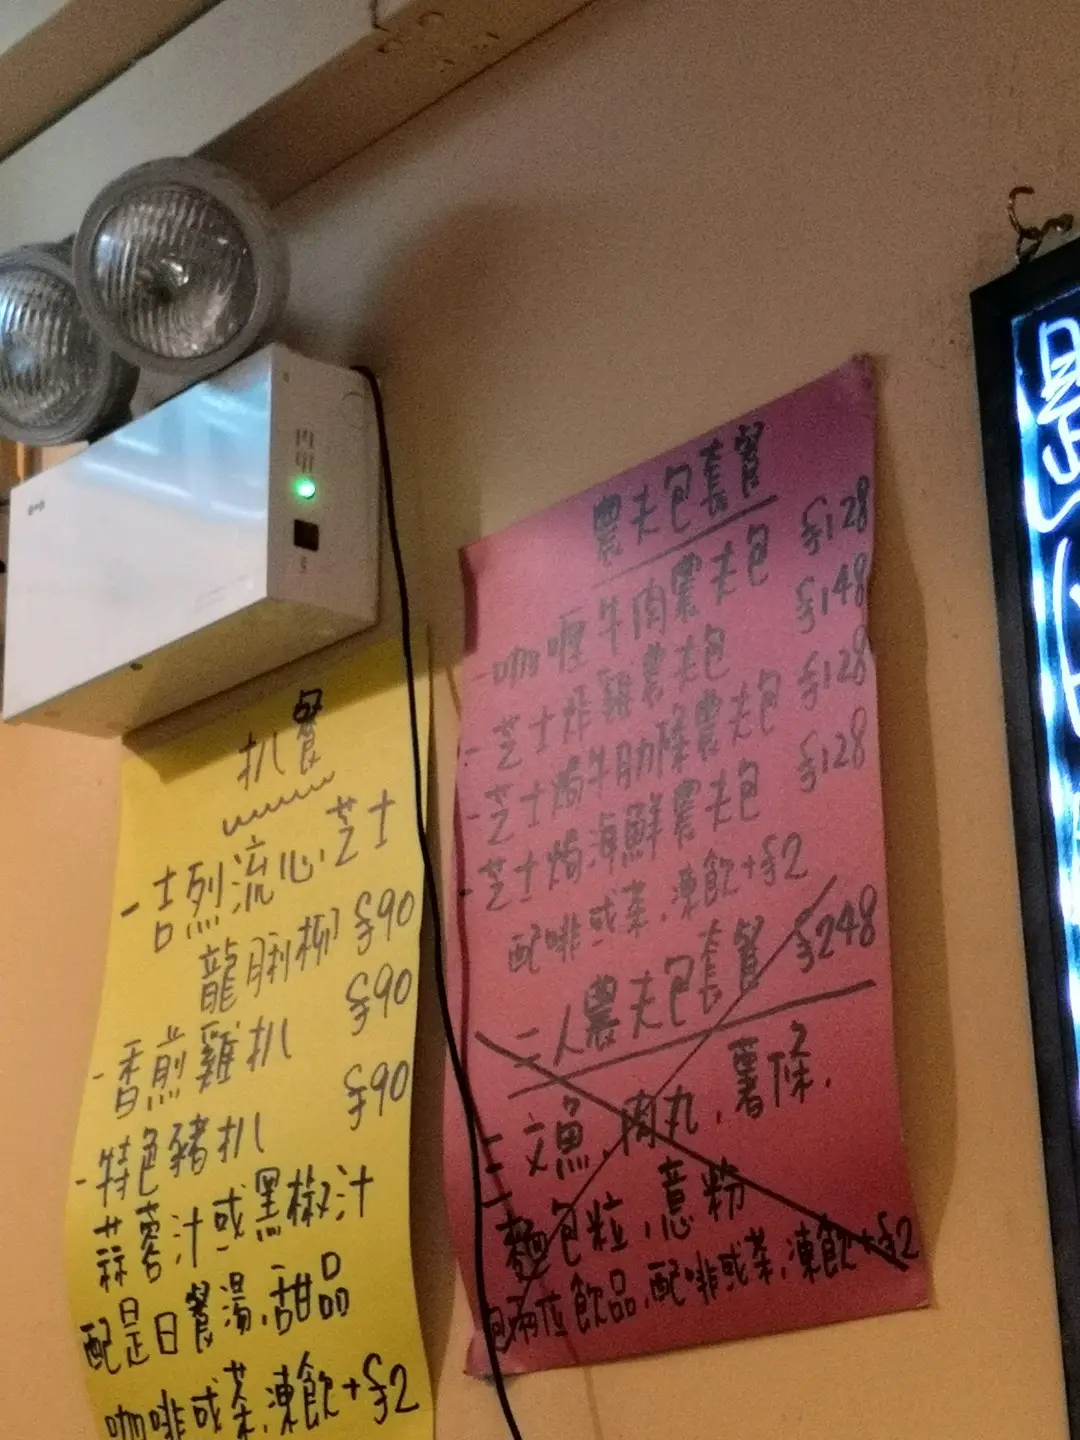 扒餐
- 吉列流心芝士
龍脷柳 $90
- 香煎雞扒 $90
- 特色豬扒 $90
蒜蓉汁或黑椒汁
配是日餐湯,甜品
咖啡或茶,凍飲+$2
農夫包套餐
- 咖喱牛肉農夫包 $128
- 芝士炸雞農夫包 $148
- 芝士焗牛肋條農夫包 $128
- 芝士焗海鮮農夫包 $128
配啡或茶,凍飲+$2
二人農夫包套餐 $248
三文魚,肉丸,薯條,
麵包粒,意粉
包兩位飲品,配啡或茶,凍飲+$2
是